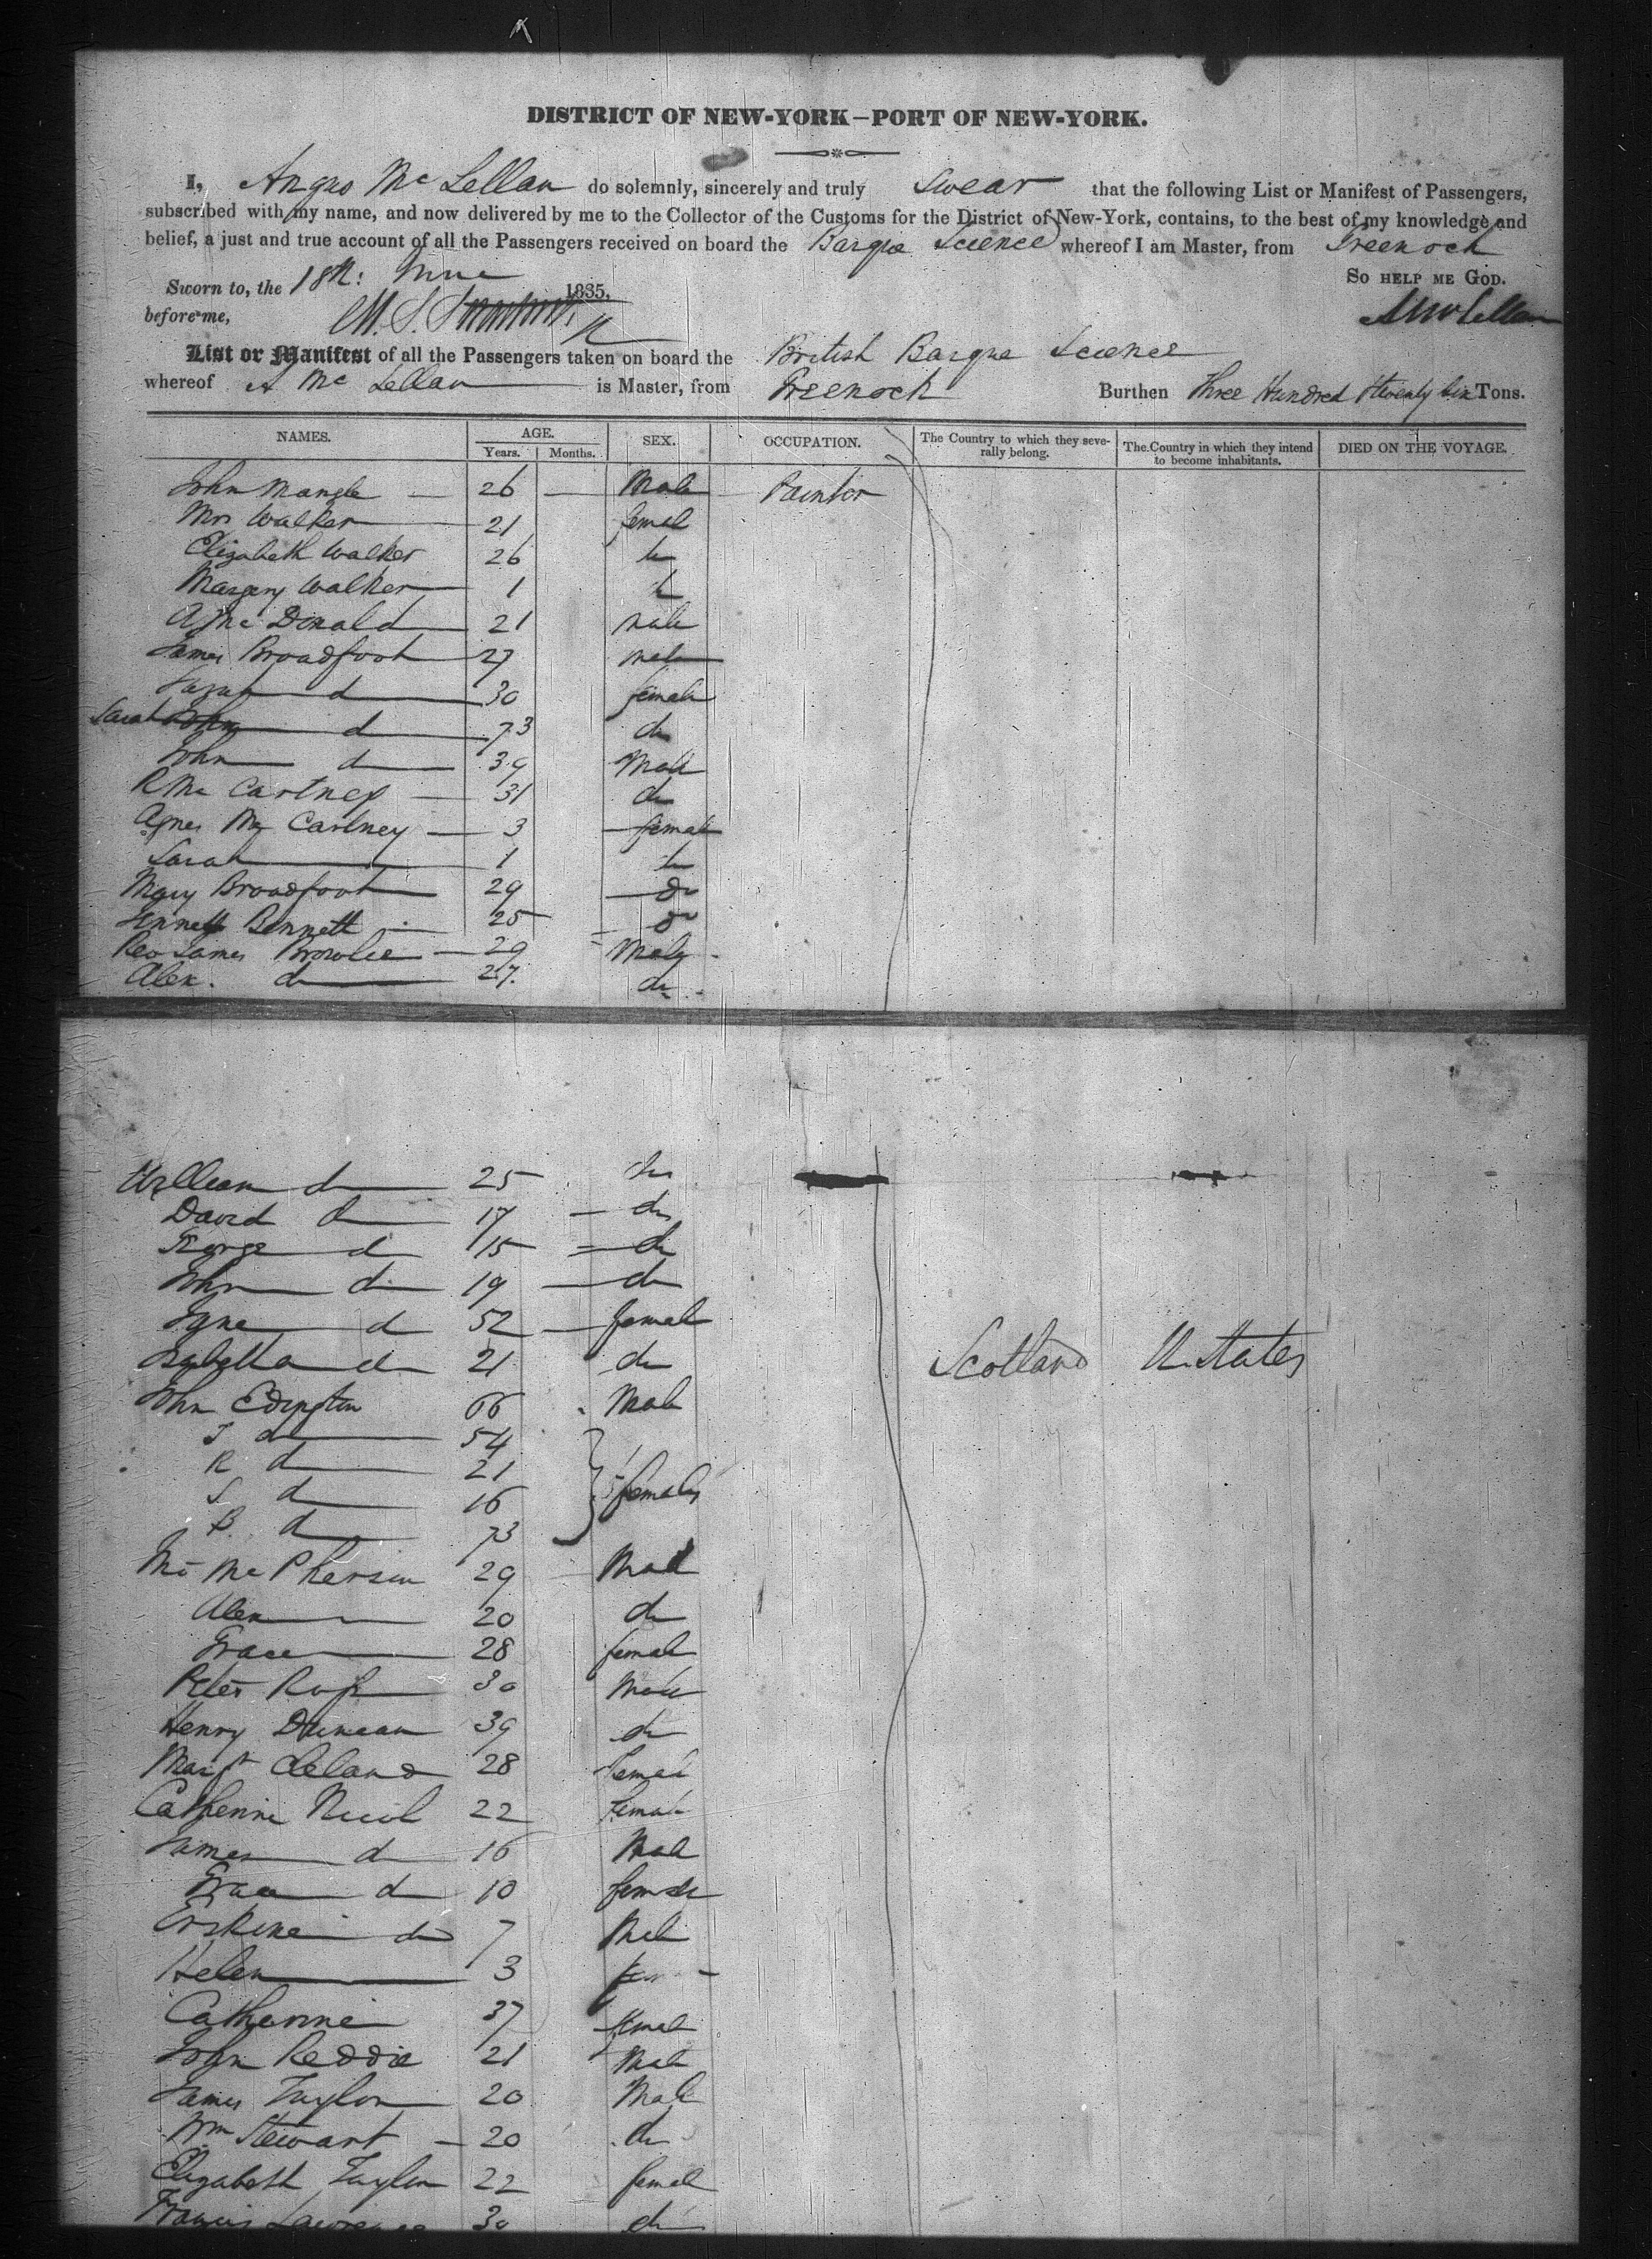 DISTRICT OF NEW-YORK—PORT OF NEW-YORK.
I, Angus Mc Lellan do solemnly, sincerely and truly swear that the following List or Manifest of Passengers,
subscribed with my name, and now delivered by me to the Collector of the Customs for the District of New-York, contains, to the best of my knowledge and
belief, a just and true account of all the Passengers received on board the Barque Science whereof I am Master, from Greenock
So help me God.
Sworn to, the 18th: June 1835,
before me,
A McLellan
List or Manifest of all the Passengers taken on board the British Barque Science
whereof A Mc Lellan is Master, from Greenock Burthen Three Hundred & twenty six Tons.
NAMES. AGE. Years. Months. SEX. OCCUPATION. The Country to which they severally belong. The Country in which they intend to become inhabitants. DIED ON THE VOYAGE.
John Mangle 26 Male Painter
Mrs Walker 21 femal
Elizabeth Walker 26 do
Margery Walker 1 do
A Mc Donald 21 male
James Broadfoot 27 male
Sarah do 30 female
Sarah do 73 do
John do 39 Male
R Mc Cartney 31 do
Agnes Mc Cartney 3 female
Sarah 1 do
Mary Broadfoot 29 do
Bennett 25 do
Rev James Brownlee 29 Male
Alex. do 27. do
William do 25 do
David do 17 do
George do 15 do
John do 19 do
Jane do 52 female
Isabella do 21 do
Scotland U. States
John Edington 66 Male
J do 54
R do 21
S do 16 females
B. do 73
Mc Pherson 29 Male
Alex 20 do
Grace 28 female
Peter Ross 30 Male
Henry Duncan 39 do
Margt Cleland 28 female
Catherine Nicol 22 female
James do 16 Male
Grace do 10 female
Erskine do 7 Male
Helen 3 fem
Catherine 37 female
John Reddie 21 Male
James Taylor 20 Male
Wm Stewart 20 do
Elizabeth Taylor 22 female
Francis Lawrence 30 do